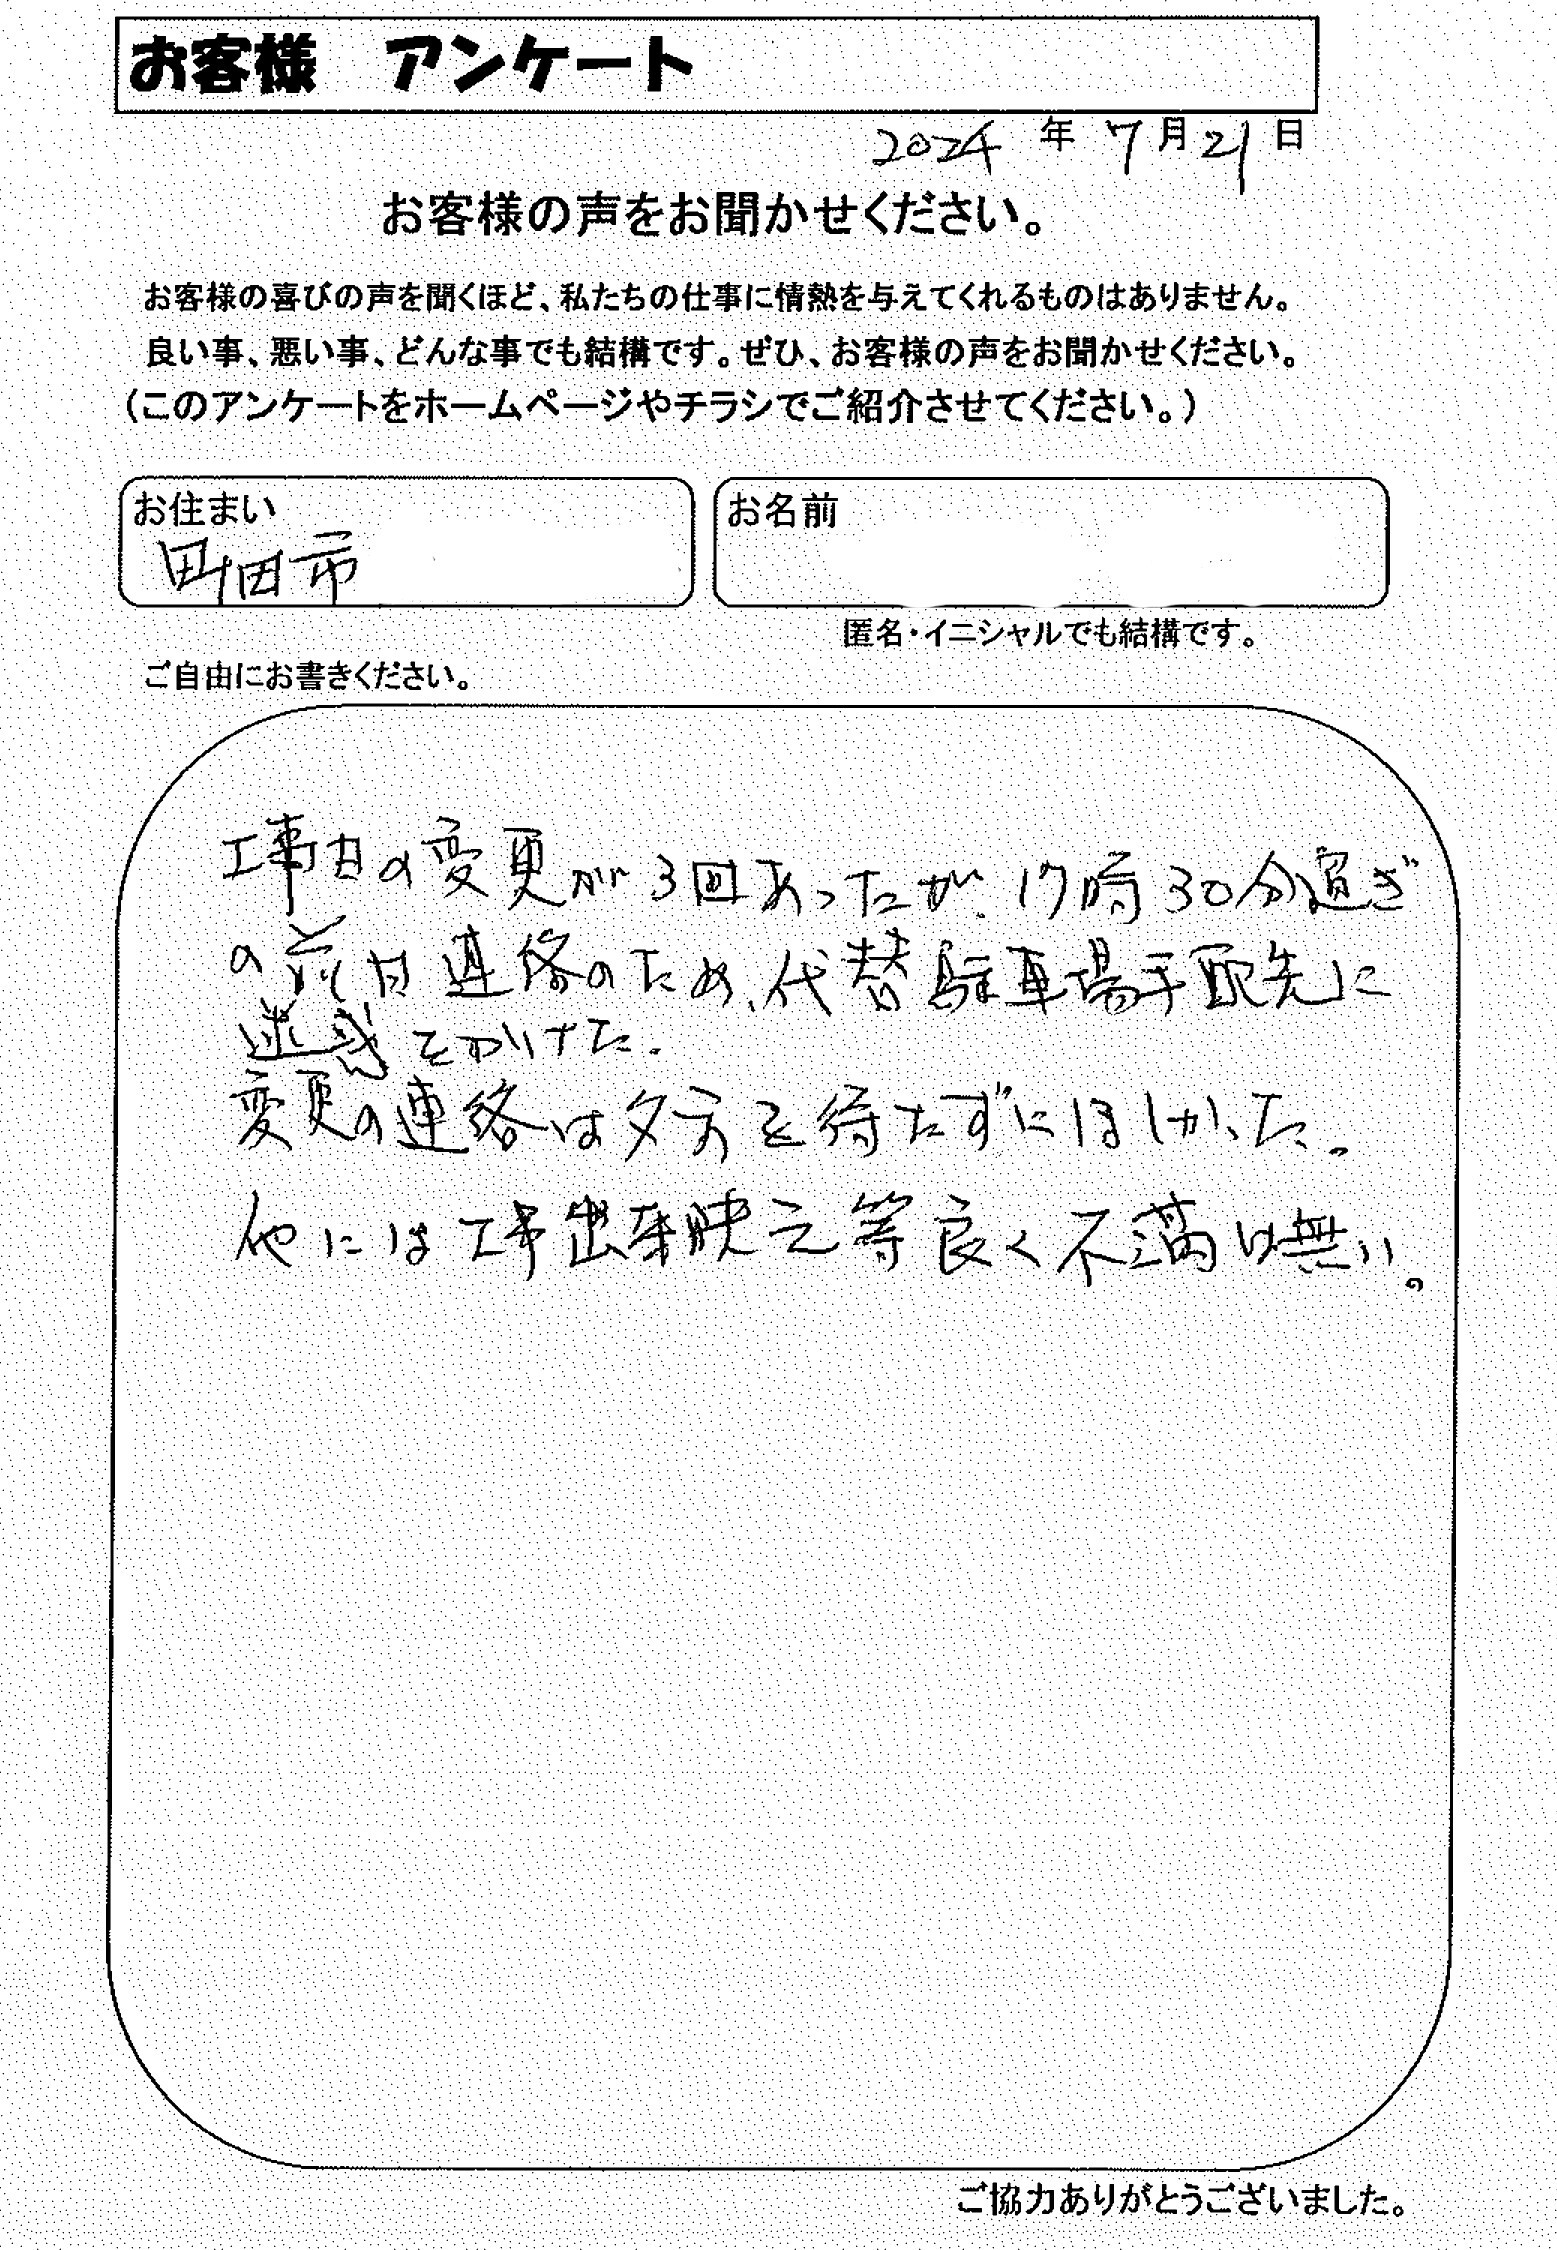 お客様　アンケート
2024年7月21日
お客様の声をお聞かせください。
お客様の喜びの声を聞くほど、私たちの仕事に情熱を与えてくれるものはありません。
良い事、悪い事、どんな事でも結構です。ぜひ、お客様の声をお聞かせください。
（このアンケートをホームページやチラシでご紹介させてください。）
お住まい
町田市
お名前
匿名・イニシャルでも結構です。
ご自由にお書きください。
工事日の変更が3回あったが、17時30分過ぎ
の前日連絡のため、代替駐車場手配先に
迷惑をかけた。
変更の連絡は夕方を待たずにほしかった。
他には工事出来映え等良く不満は無い。
ご協力ありがとうございました。